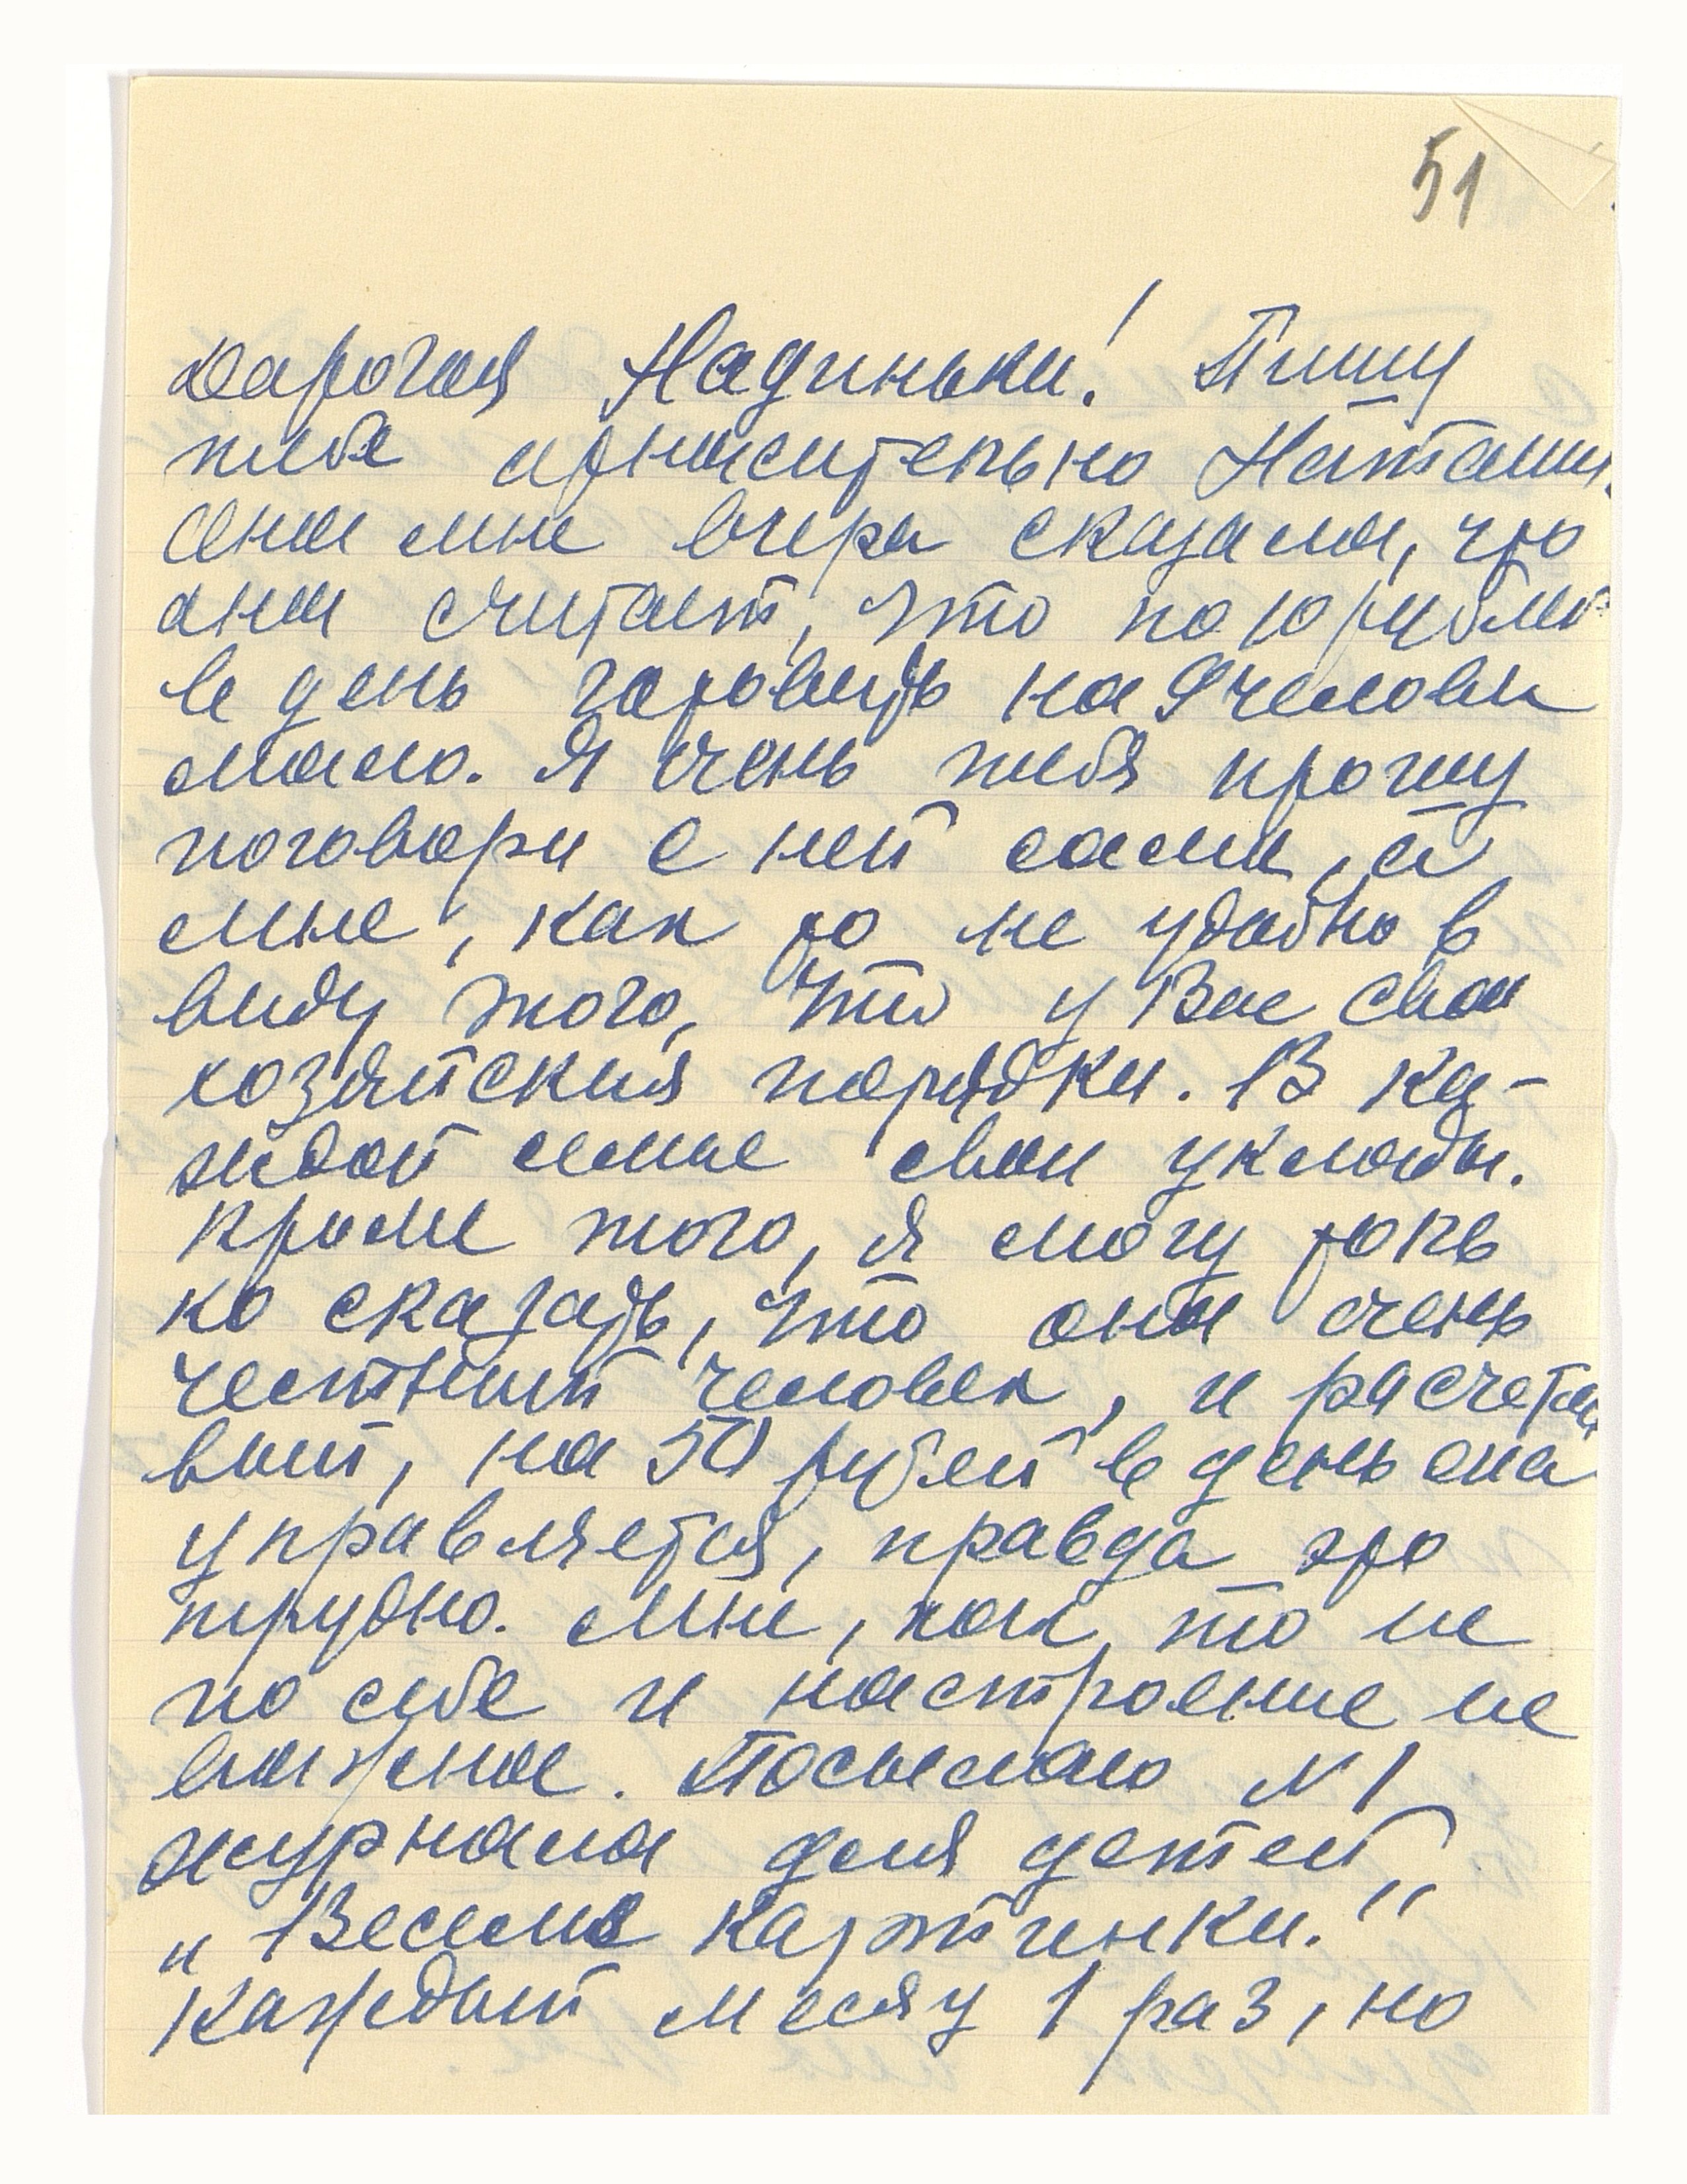 51
Дарогая Надинька! Пишу
тебе относительно Наташи.
Она мне вчера сказала, что
она считает, что по 10 рублей
в день готовить на 9 человек
мало. Я очень тебя прошу
поговори с ней сама, а
мне, как то не удобно в
виду того, что у Вас свои
хозяйския порядки. В ка-
ждой семье свои уклады.
Кроме того, я могу толь
ко сказать, что она очень
честный человек, и расчетли
вый, на 50 рублей в день она
управляется, правда это
трудно. Мне, как то не
по себе и настроение не
важное. Посылаю N 1
журнала для детей,
„Веселые картинки."
Каждый месяц 1 раз, но